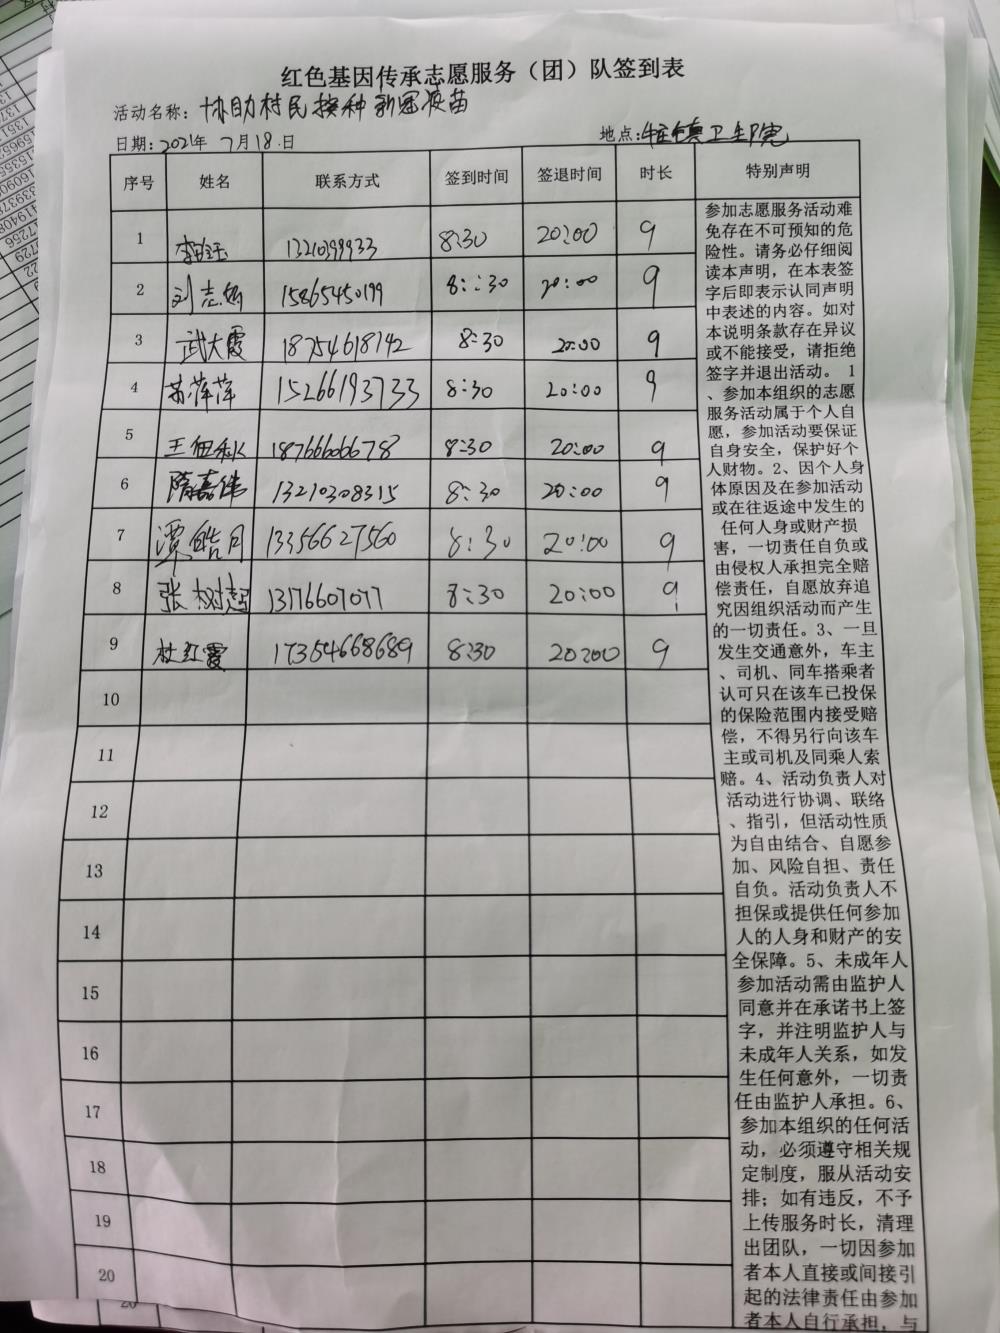 红色基因传承志愿服务（团）队签到表
活动名称：协助村民接种新冠疫苗
日期：2021年 7月18.日 地点：镇卫生院
序号 姓名 联系方式 签到时间 签退时间 时长 特别声明
1 8:30 20:00 9
2 15865450199 8:30 20:00 9
3 武大霞 18754618742 8:30 20:00 9
4 苏萍萍 15266193733 8:30 20:00 9
5 18766606678 8:30 20:00 9
6 隋嘉伟 13210308315 8:30 20:00 9
7 覃皓月 13356627560 8:30 20:00 9
8 张树超 13176607077 8:30 20:00 9
9 杜红霞 17354668689 8:30 20:00 9
10
11
12
13
14
15
16
17
18
19
20
参加志愿服务活动难
免存在不可预知的危
险性。请务必仔细阅
读本声明，在本表签
字后即表示认同声明
中表述的内容。如对
本说明条款存在异议
或不能接受，请拒绝
签字并退出活动。 1
、参加本组织的志愿
服务活动属于个人自
愿，参加活动要保证
自身安全，保护好个
人财物。2、因个人身
体原因及在参加活动
或在往返途中发生的
任何人身或财产损
害，一切责任自负或
由侵权人承担完全赔
偿责任，自愿放弃追
究因组织活动而产生
的一切责任。3、一旦
发生交通意外，车主
、司机、同车搭乘者
认可只在该车已投保
的保险范围内接受赔
偿，不得另行向该车
主或司机及同乘人索
赔。4、活动负责人对
活动进行协调、联络
、指引，但活动性质
为自由结合、自愿参
加、风险自担、责任
自负。活动负责人不
担保或提供任何参加
人的人身和财产的安
全保障。5、未成年人
参加活动需由监护人
同意并在承诺书上签
字，并注明监护人与
未成年人关系，如发
生任何意外，一切责
任由监护人承担。6、
参加本组织的任何活
动，必须遵守相关规
定制度，服从活动安
排；如有违反，不予
上传服务时长，清理
出团队，一切因参加
者本人直接或间接引
起的法律责任由参加
者本人自行承担，与